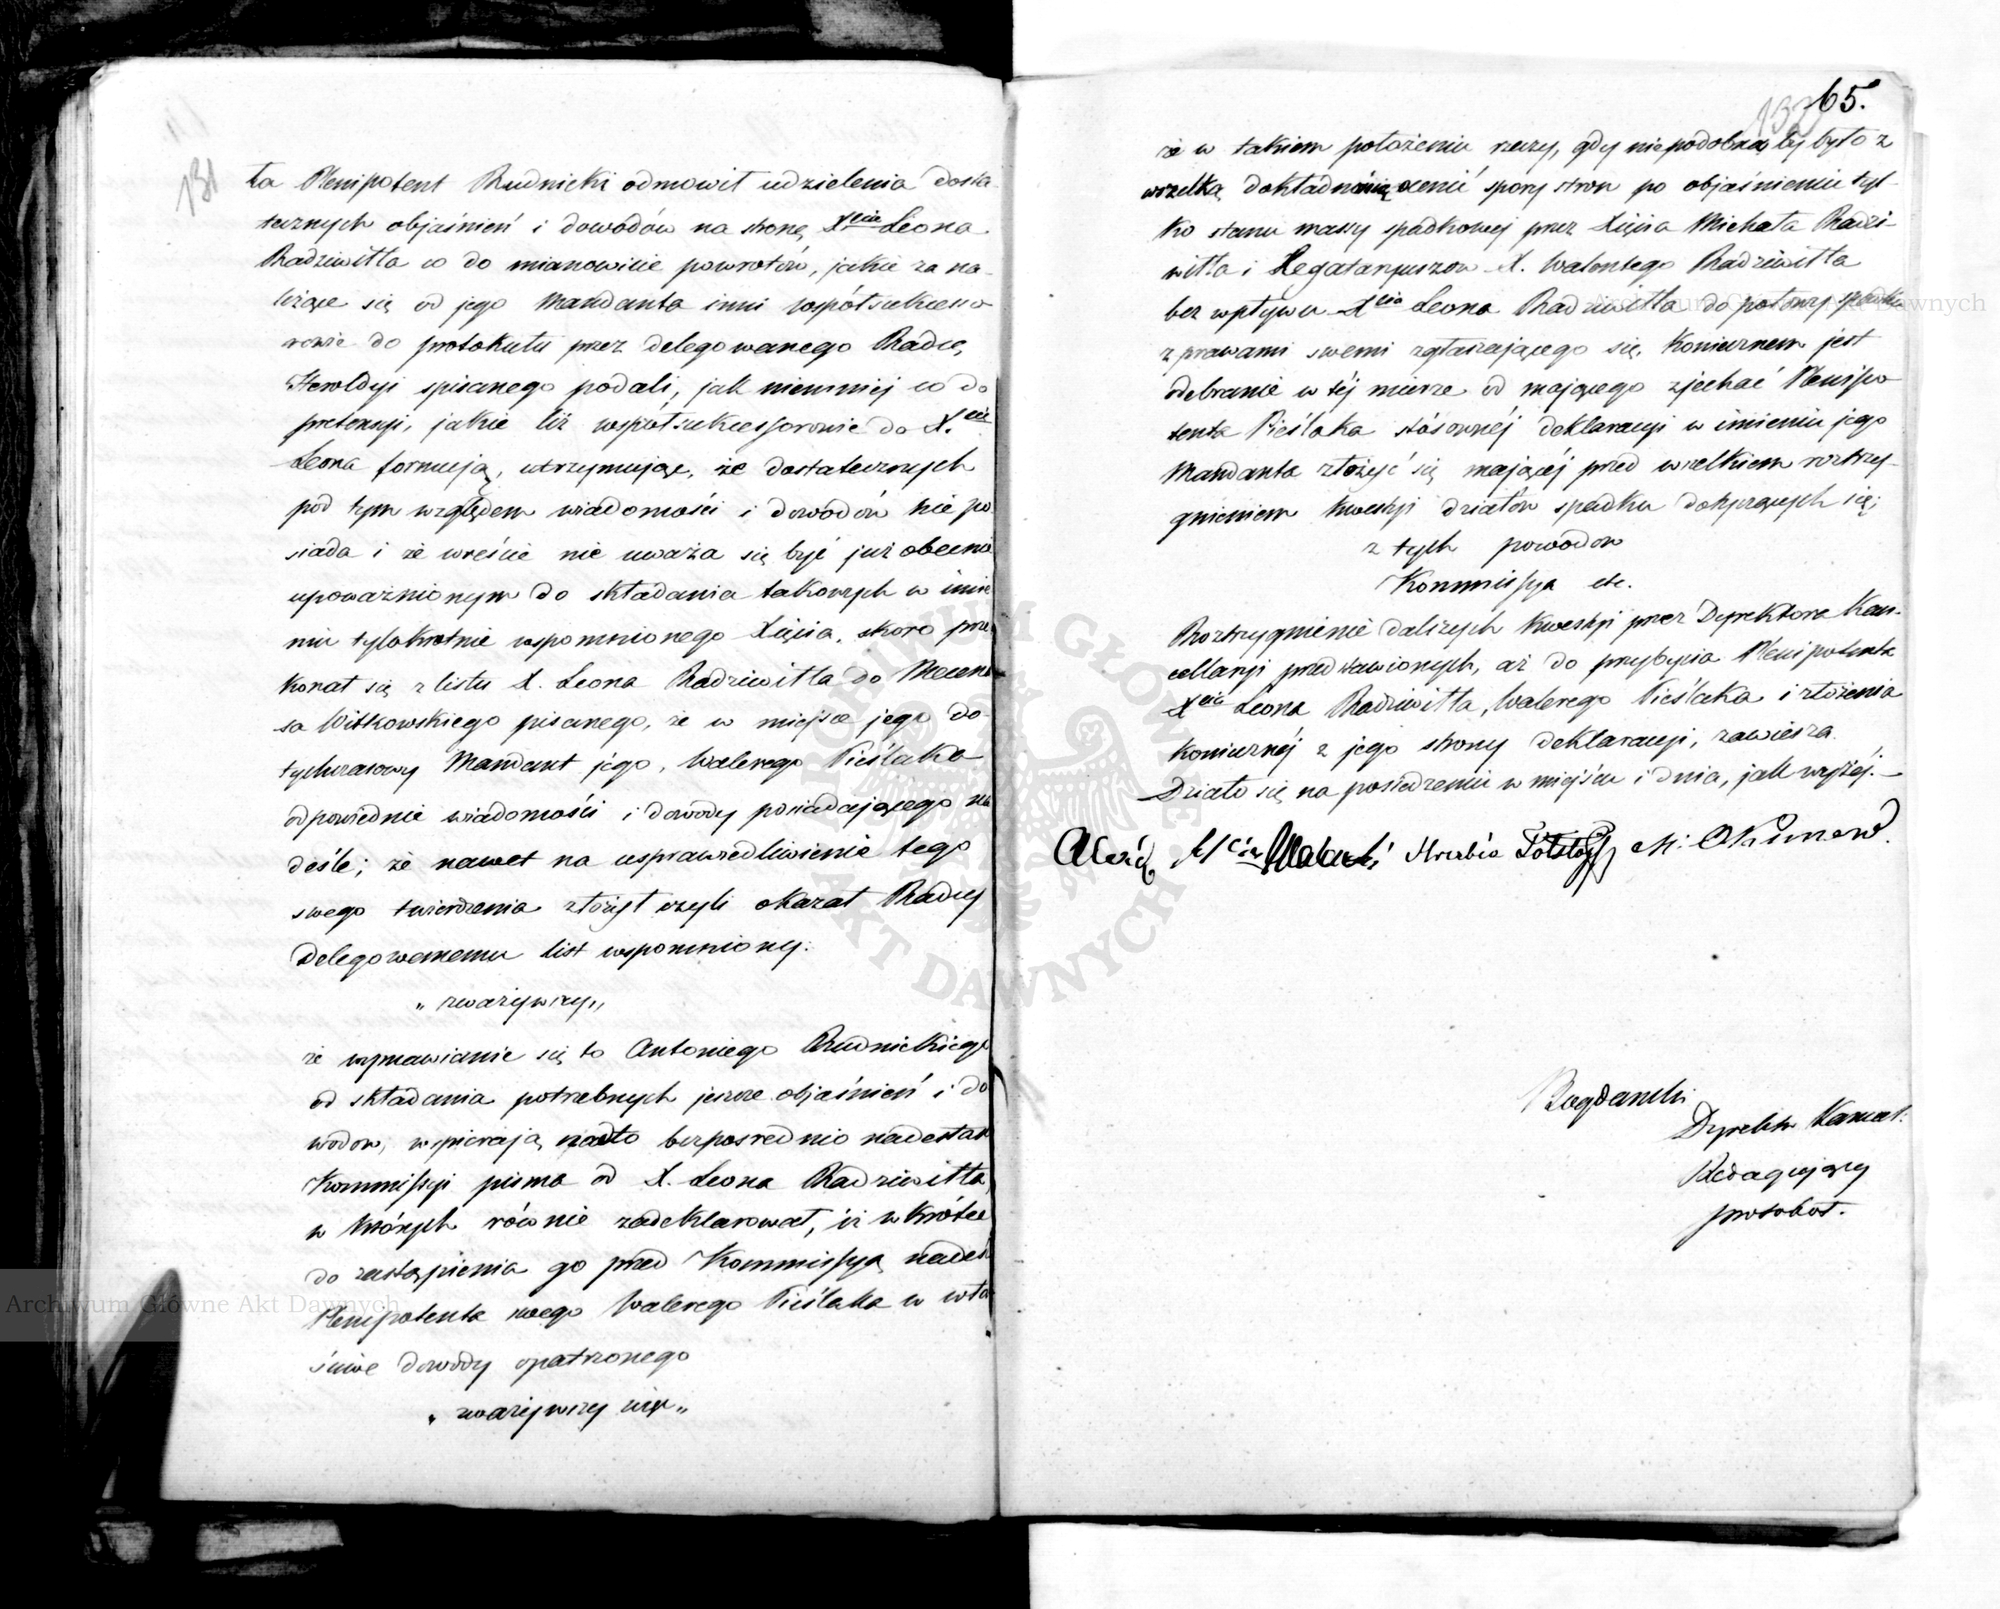 131
ta Plenipotent Rudnicki odmówił udzielenia dosta-
tecznych objaśnień i dowodów na stronę Xcia Leona
Radziwiłła co do mianowicie powrotów, jakie za na-
leżące się od jego Mandanta inni współsukcesso-
rowie do protokułu przez delegowanego Radcę
Heroldyi spisanego podali, jak niemniej co do
pretensyi, jakie ciż współsukcessorowie do X.cia
Leona formują, utrzymując, że dostatecznych
pod tym względem wiadomości i dowodów nie po
siada i że wreście nie uważa się być już obecnie
upoważnionym do składania takowych w imie
niu tylokrotnie wspomnionego Xięcia, skoro prze
konał się z listu X. Leona Radziwiłła do Mecena
sa Witkowskiego pisanego, że w miejsce jego do-
tychczasowy Mandant jego, Walerego Pieślaka
odpowiednie wiadomości i dowody posiadającego na
deśle; że nawet na usprawiedliwienie tego
swego twierdzenia złożył czyli okazał Radcy
Delegowanemu list wspomniony.
„zważywszy„
że wymawianie się to Antoniego Rudnickiego
od składania potrzebnych jeszcze objaśnień i do
wodów, wspierają nadto bezpośrednio nadesłane
Kommissyi pisma od X. Leona Radziwiłła,
w których równie zadeklarował, iż wkrótce
do zastąpienia go przed Kommissyą nadeśle
Plenipotenta swego Walerego Pieślaka w wła
ściwe dowody opatrzonego
„zważywszy więc„
65.
że w takiem położeniu rzeczy, gdy niepodobna by było z
wszelką dokładnością ocenić spory stron po objaśnieniu tyl-
ko stanu massy spadkowej przez Xięcia Michała Radzi-
wiłła i Legataryuszów X. Walentego Radziwiłła
bez wpływu Xcia Leona Radziwiłła do połowy spadku
z prawami swemi zgłaszającego się, koniecznem jest
odebranie w téj mierze od mającego zjechać Plenipo
tenta Pieślaka stósownéj deklaracyi w imieniu jego
Mandanta złożyć się mającéj przed wszelkiem roztrzy-
gnieniem kwestyi działów spadku dotyczących się;
z tych powodów
Kommissya etc.
Roztrzygnienie dalszych kwestyi przez Dyrektora Kan-
cellaryi przedstawionych, aż do przybycia Plenipotenta
Xcia Leona Radziwiłła, Walerego Pieślaka i złożenia
koniecznéj z jego strony deklaracyi, zawiesza.
Działo się na posiedzeniu w miejscu i dnia, jak wyżéj.—
Hrabia Tołstoy M: Okunew.
Bogdański
Dyrektor Kancel:
Redagujący
protokół.
Archiwum Główne Akt Dawnych
Archiwum Główne Akt Dawnych
ARCHIWUM GŁÓWNE AKT DAWNYCH